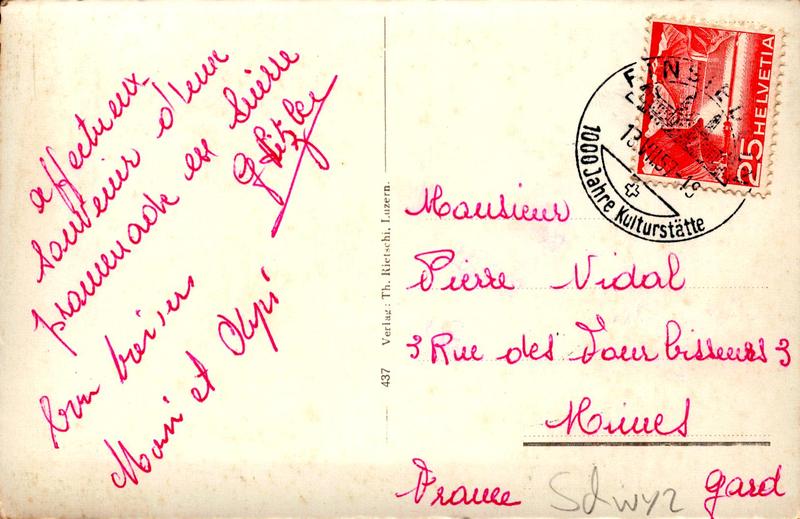 affectueux
souvenir d'une
promenade en Suisse
bon baisers
Moni et
437 Verlag: Th. Rietschi, Luzern.
EINSIEDELN
1000 Jahre Kulturstätte
HELVETIA
25
Monsieur
Pierre Vidal
3 Rue des Fourbisseurs 3
Nimes
France Gard
Schwyz